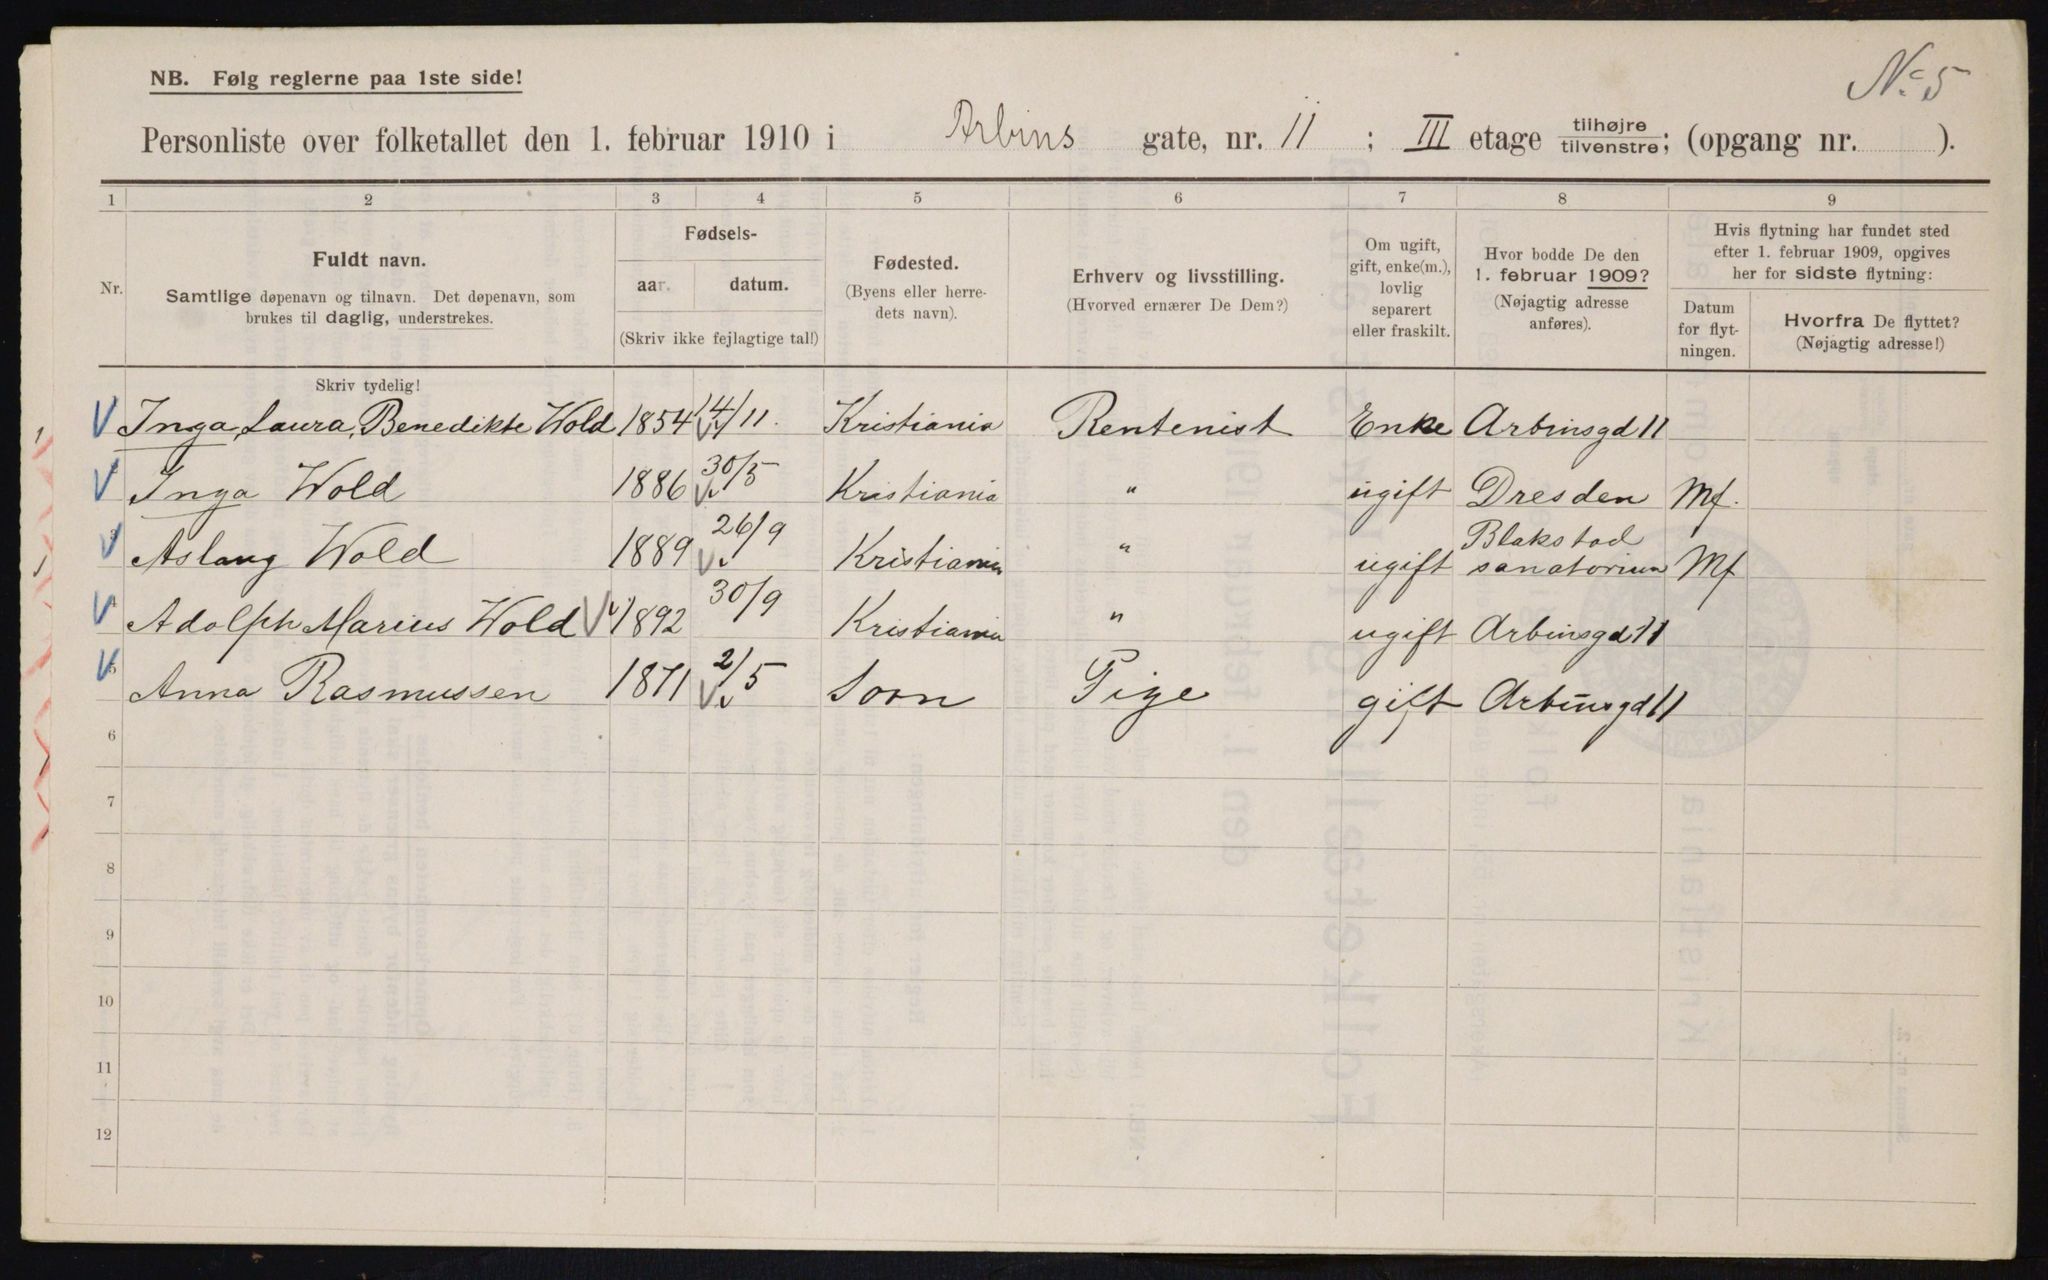 NB. Følg reglerne paa 1ste side!
No 5
Personliste over folketallet den 1. februar 1910 i Arbins gate, nr. 11; III etage tilhøjre tilvenstre; (opgang nr. ).
1 2 3 4 5 6 7 8 9
Nr.
Fuldt navn.
Samtlige døpenavn og tilnavn. Det døpenavn, som
brukes til daglig, understrekes.
Fødsels-
aar. datum.
(Skriv ikke fejlagtige tal!)
Fødested.
(Byens eller herre-
dets navn).
Erhverv og livsstilling.
(Hvorved ernærer De Dem?)
Om ugift,
gift, enke(m.),
lovlig
separert
eller fraskilt.
Hvor bodde De den
1. februar 1909?
(Nøjagtig adresse
anføres).
Hvis flytning har fundet sted
efter 1. februar 1909, opgives
her for sidste flytning:
Datum
for flyt-
ningen.
Hvorfra De flyttet?
(Nøjagtig adresse!)
Skriv tydelig!
Inga, Laura, Benedikte Wold 1854 4/11. Kristiania Rentenist Enke Arbinsgd 11
Inga Wold 1886 30/5 Kristiania " ugift Dresden Mf.
3 Aslaug Wold 1889 26/9 Kristiania " ugift Blakstad sanatorium Mf
4 Adolph Marius Wold 1892 30/9 Kristiania " ugift Arbinsgd 11
5 Anna Rasmussen 1871 2/5 Pige gift Arbinsgd 11
6
7
8
9
10
11
12